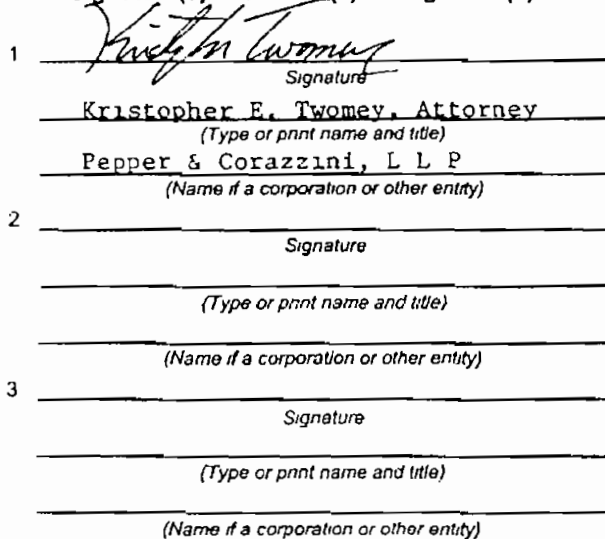 1 Kristopher E. Twomey
Signature
Kristopher E. Twomey, Attorney
(Type or print name and title)
Pepper & Corazzini, L L P
(Name if a corporation or other entity)
2
Signature
(Type or print name and title)
(Name if a corporation or other entity)
3
Signature
(Type or print name and title)
(Name if a corporation or other entity)